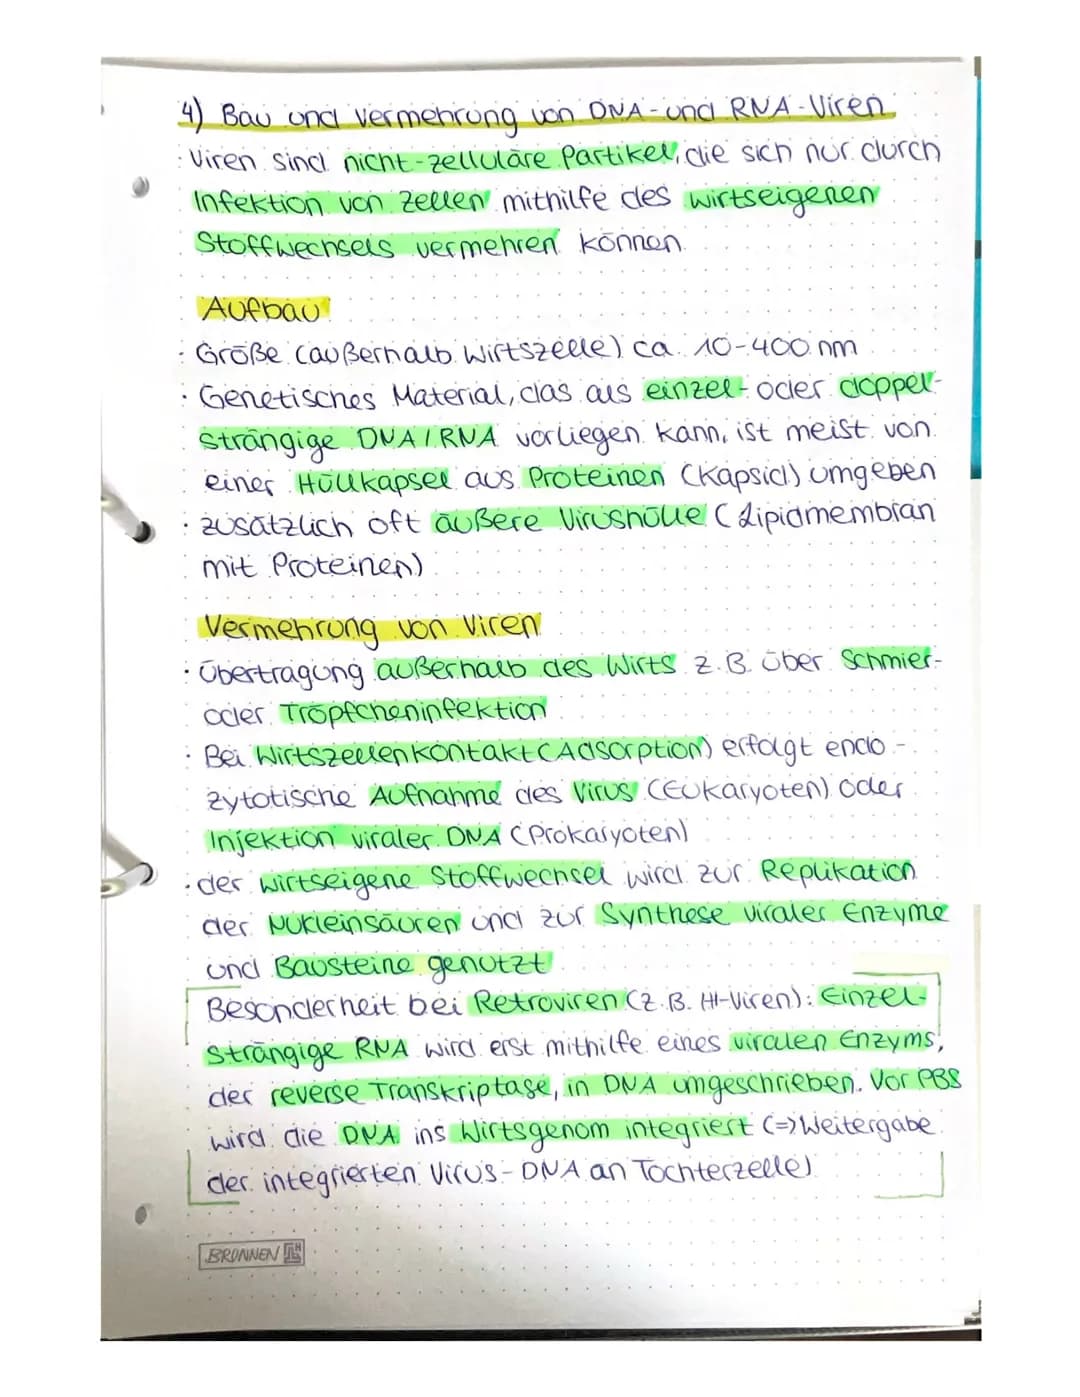 4) Bau und Vermehrung von DNA-und RNA-Viren
· Viren sind nicht-zelluläre Partikel, die sich nur durch
Infektion von Zellen mithilfe des wirtseigenen
Stoffwechsels vermehren können.
Aufbau
· Größe (außerhalb Wirtszelle) ca. 10-400 nm
· Genetisches Material, das als einzel- oder doppel-
strängige DNA/RNA vorliegen kann, ist meist von
einer Hüllkapsel aus Proteinen (Kapsid) umgeben
· zusätzlich oft äußere Virushülle (Lipidmembran
mit Proteinen)
Vermehrung von Viren
· Übertragung außerhalb des Wirts z.B. über Schmier-
oder Tröpfcheninfektion
· Bei Wirtszellenkontakt (Adsorption) erfolgt endo-
zytotische Aufnahme des Virus (Eukaryoten) oder
Injektion viraler DNA (Prokaryoten)
· der wirtseigene Stoffwechsel wird zur Replikation
der Nukleinsäuren und zur Synthese viraler Enzyme
und Bausteine genutzt
Besonderheit bei Retroviren (z.B. HI-Viren): Einzel-
strängige RNA wird erst mithilfe eines viralen Enzyms,
der reverse Transkriptase, in DNA umgeschrieben. Vor PBS
wird die DNA ins Wirtsgenom integriert (=> Weitergabe
der integrierten Virus-DNA an Tochterzelle)
BRUNNEN